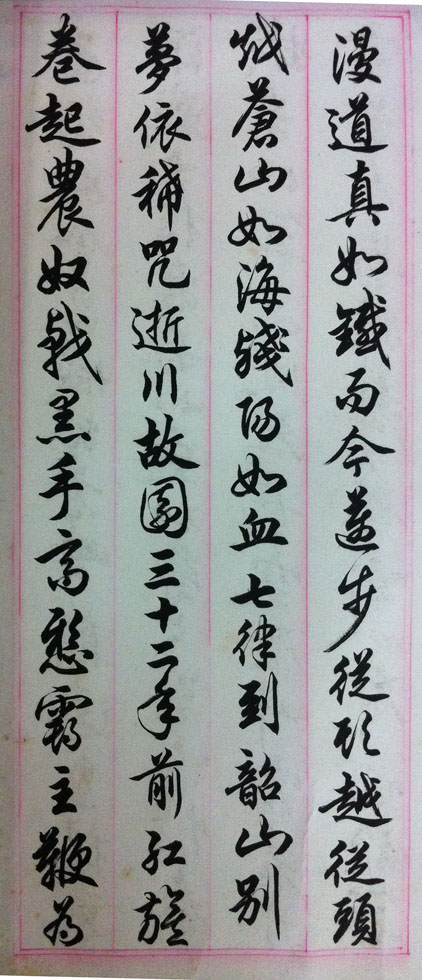 漫道真如鐵而今邁步從頭越從頭
越蒼山如海殘陽如血七律到韶山別
夢依稀咒逝川故園三十二年前紅旗
卷起農奴戟黑手高懸霸主鞭為